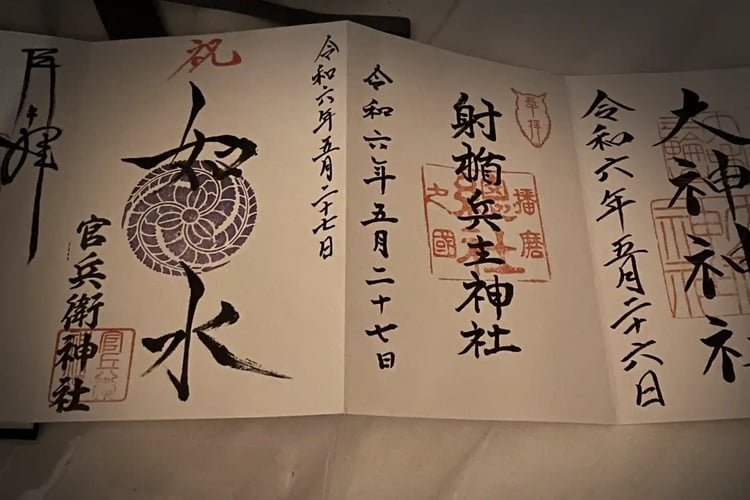 大神神社
令和六年五月二十六日
奉拝
播磨
總社
之國
射楯兵主神社
令和六年五月二十七日
令和六年五月二十七日
祝
如水
官兵衛神社
官兵衛